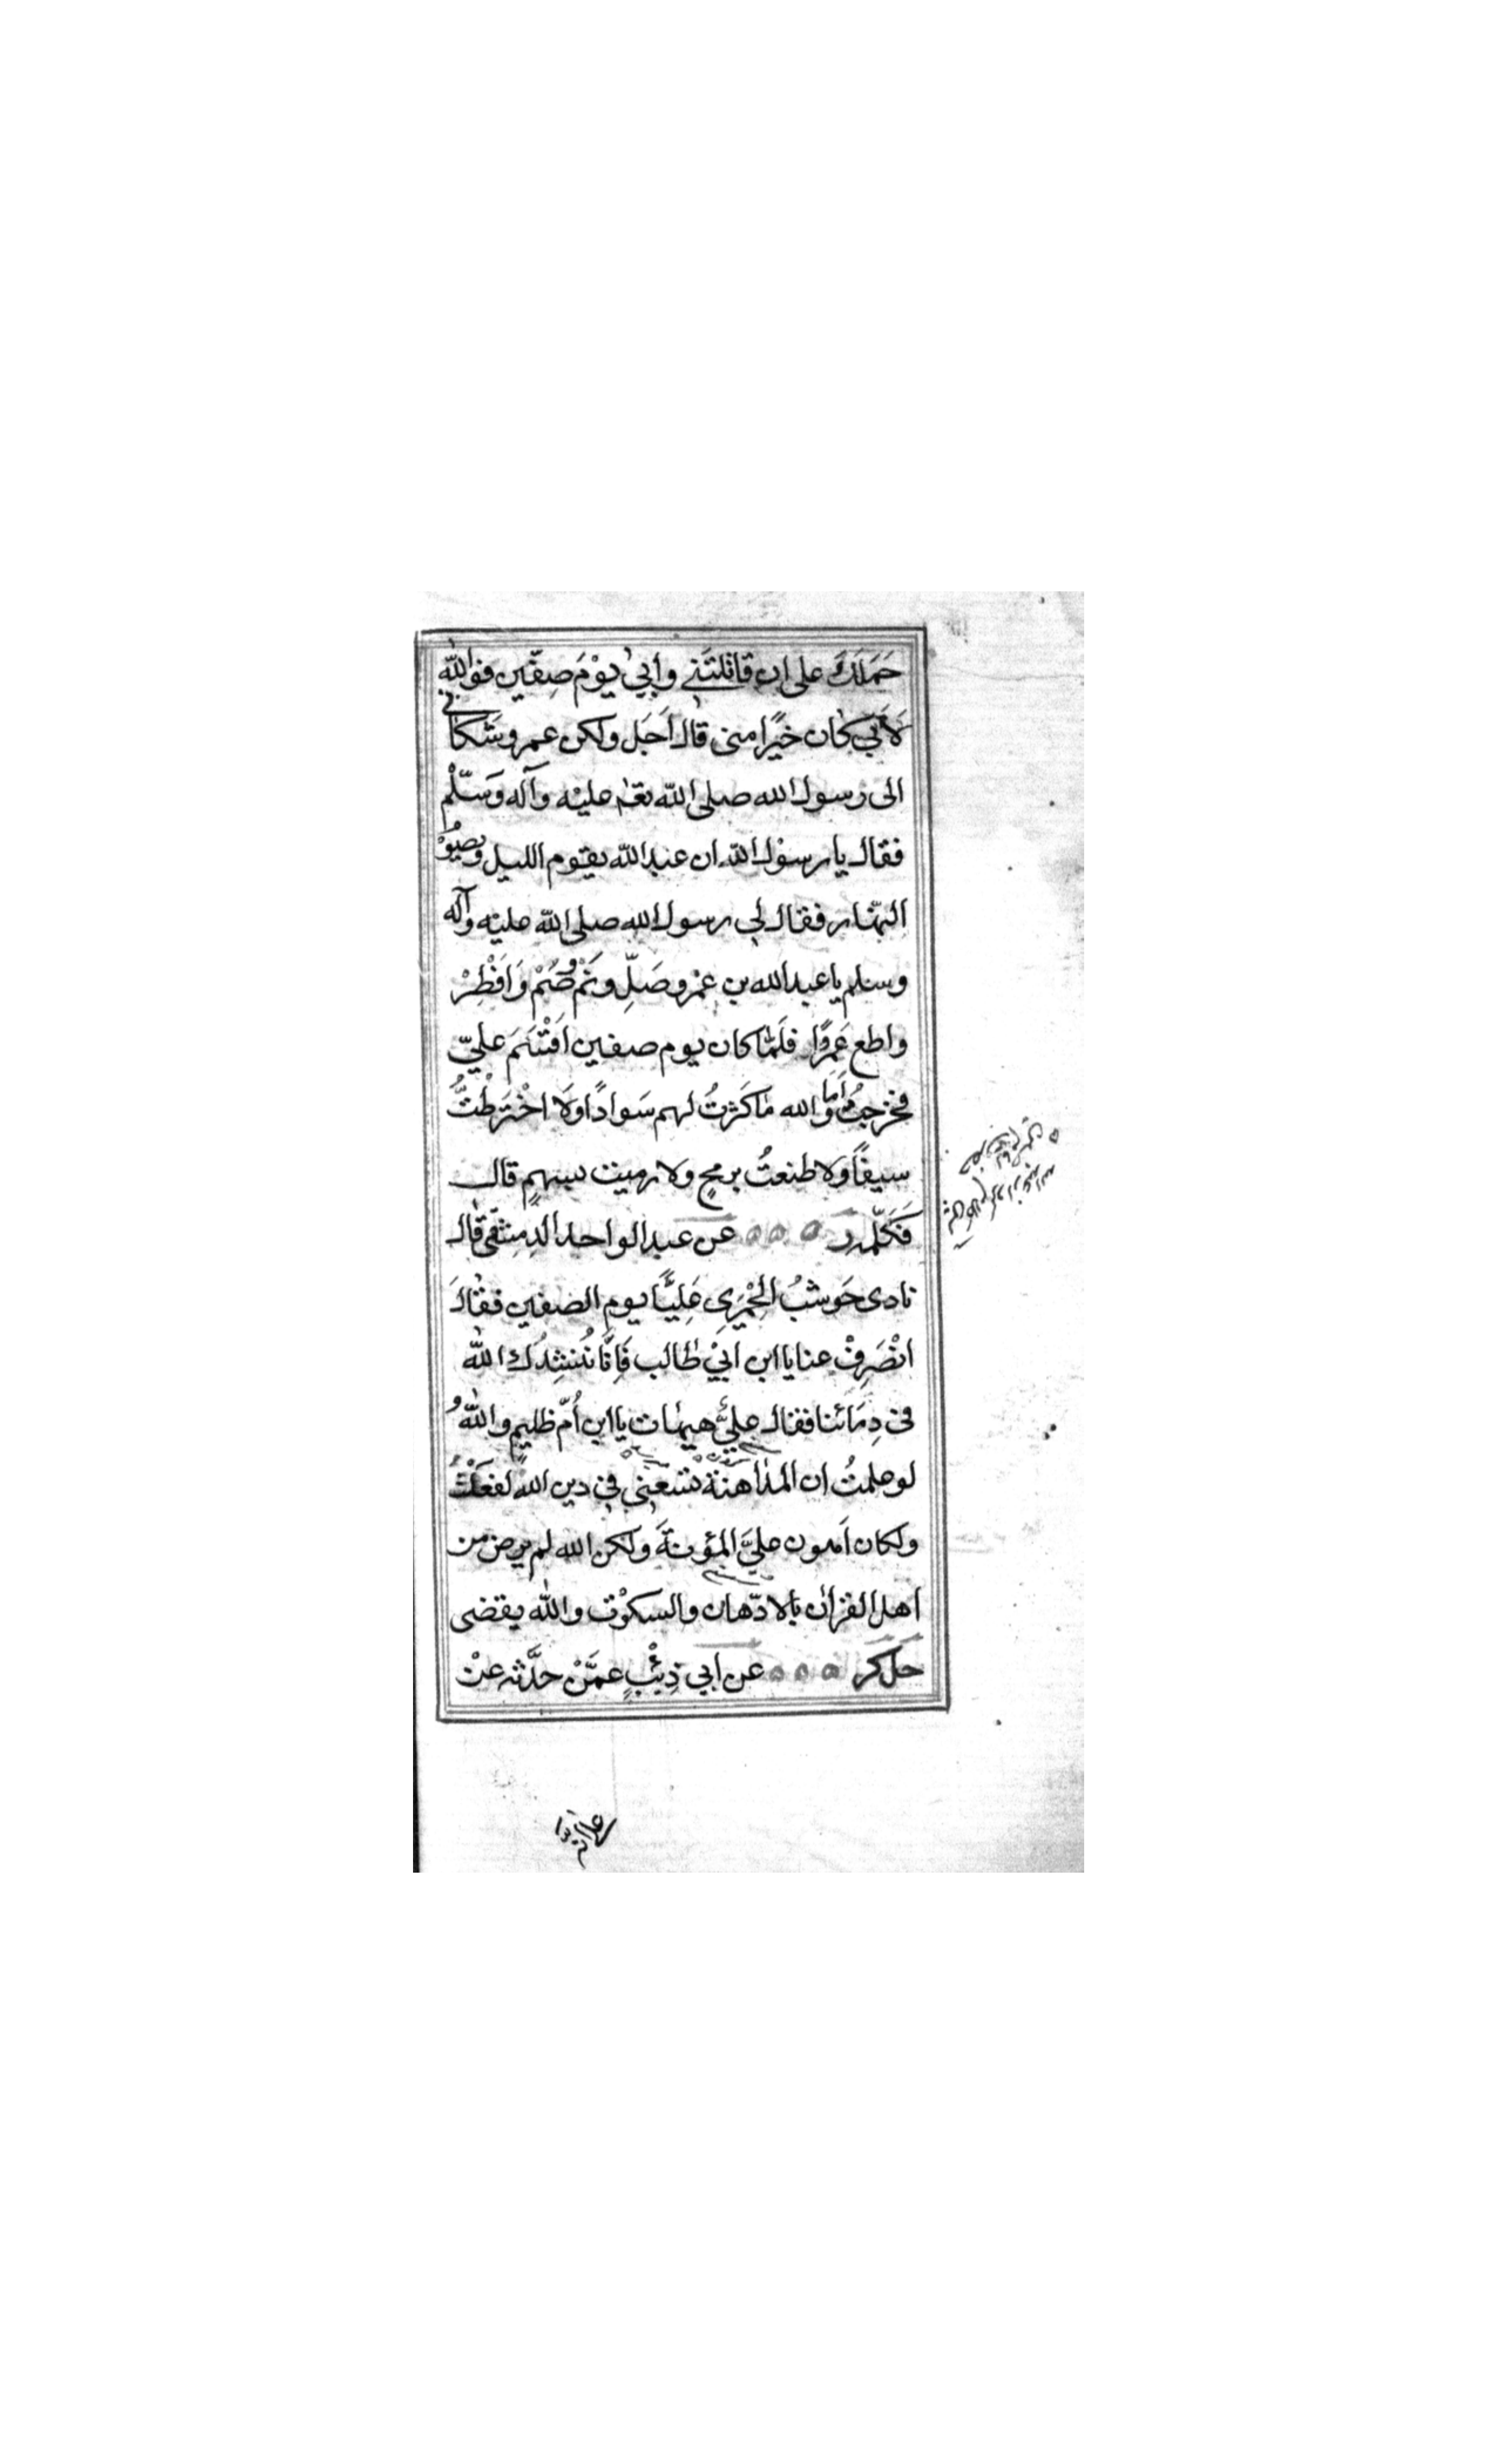 حَمَلَكَ على ان قاتلتَني وأبي يوْمَ صِفّين فوالله
لَأَبي كان خيرًا مني قال اَجَل ولكن عمرو شَكاني
الى رسول الله صلى الله تعٰ عليْه وآله وَسَلّمْ
فقال يا رسوْل الله ان عبد الله يقوم الليل ويصُوْ
النّهَار فقال لي رسول الله صلى الله عليْه وآله
وسلم يا عبد الله بن عمْرو صَلِّ ونَمْ وصُمْ وَاَفْطِرْ
واطع عَمروًا فلَمّا كان يوم صفين اَقْسَمَ عليّ
فخرجتُ أَما والله ما كَثرتُ لهم سَوادًا ولَا اخْتَرَطْتُ
سيفًا ولا طنعتُ برمحٍ ولا رميت بسهمٍ قال
فَكَلّمه كر ٥ ٥ ٥ عن عبد الواحد الدِمِشْقى قال
نادى حَوشبُ الحِمْيَرِي عَلِيًّا يوم الصفين فقالَ
انْصَرِفْ عنا يا ابن ابيْ طالب فَاِنّا نُنشِدُك الله
في دِمَائنا فقال عليٌّ هيهات يا ابن اُمّ ظليمٍ والله
لو علمتُ ان المداهنة تسَعُني في دين الله لفعَلْتُ
ولكان اَهون عليَّ المؤنةَ ولكن الله لم يرض من
اهل القرآن بالادّهان والسكوْت والله يقضى
حل كر ٥ ٥ ٥ عن ابي ذِئْبٍ عمَّنْ حدَّثه عنْ